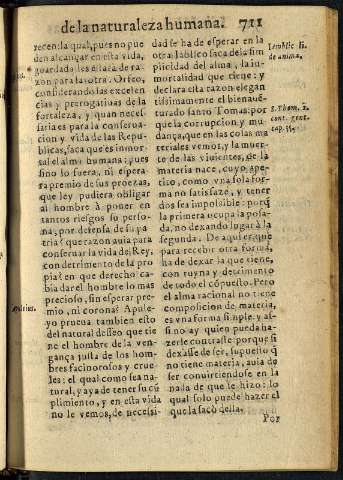 de la naturaleza humana. 711
recen: la qual, pues no pue
den alcançar en esta vida,
guardada les estarà de ra-
zon para la otra. Orfeo,
considerando las excelen
cias, y prerogatiuas de la
fortaleza, y quan necef-
saria es para la conserua-
cion, y vida de las Repu-
blicas, saca que es inmor-
tal el alma humana; pues
sino lo fuera, ni espera-
ra premio de sus proezas,
que ley pudiera obligar
al hombre à poner en
tantos riesgos su perso-
na; por defensa de su pa
tria? que razon auia para
conseruar la vida del Rey,
con detrimento de la pro
pia? en que derecho ca-
bia dar el hombre lo mas
precioso, sin esperar pre-
mio, ni corona? Apule-
yo prueua tambien esto
del natural desseo que tie
ne el hombre de la ven-
gança justa de los hom-
bres facinorosos, y crue-
les: el qual como sea na-
tural, y aya de tener su cũ
plimiento, y en esta vida
no le vemos, de necessi-
dad se ha de esperar en la
otra. Iablico saca de la sim
plicidad del alma, la in-
mortalidad que tiene: y
declara esta razon elegan
tissimamente el bienauẽ-
turado santo Tomas: por
que la corrupcion, y mu-
dança, que en las cosas ma
teriales vemos, y la muer-
te de las viuientes, de la
materia nace, cuyo ape-
tico, como vna sola for-
ma no satisfaze, y tener
dos sea impossible: porq̃
la primera ocupa la posa-
da, no dexando lugar à la
segunda. De aqui es, que
para recebir otra forma,
ha de dexar la que tiene,
con ruyna y detrimento
de todo el cõpuesto. Pero
el alma racional no tiene
composicion de materia,
es vna forma simple: y as-
si no ay quien pueda ha-
zerle contraste: porque si
dexasse de ser, supuesto q̃
no tiene materia, auia de
ser conuirtiendose en la
nada de que se hizo: lo
qual solo puede hazer el
que la sacò della.
Por
Iamblic. li.
de anima.
S. Thom. 2.
cont. gent.
cap. 55.